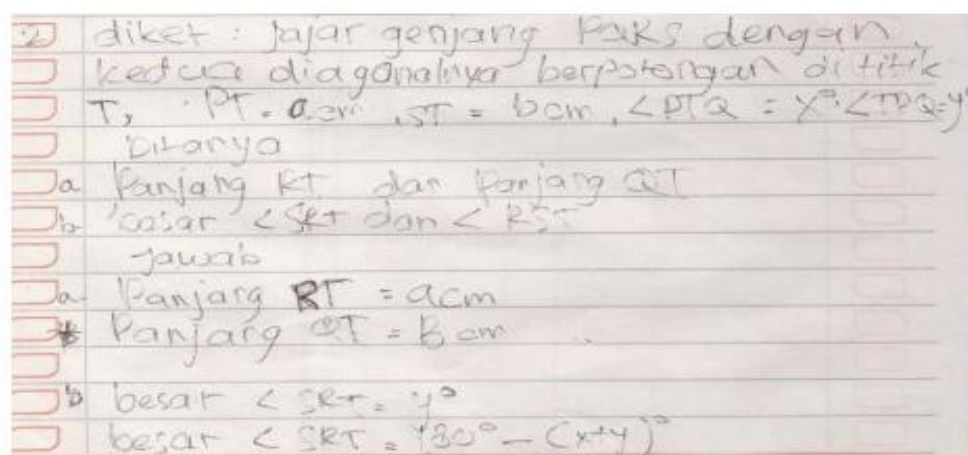 2 diket : jajar genjang PQRS dengan
kedua diagonalnya berpotongan di titik
T, PT = a cm, ST = b cm, <PTQ = x°. <TPQ = y°
Ditanya
a Panjang RT dan Panjang QT
b besar <SRT dan < RST
Jawab
a Panjang RT = a cm
* Panjang QT = b cm
b besar < SRT = y°
besar < SRT = 180° - (x+y)°